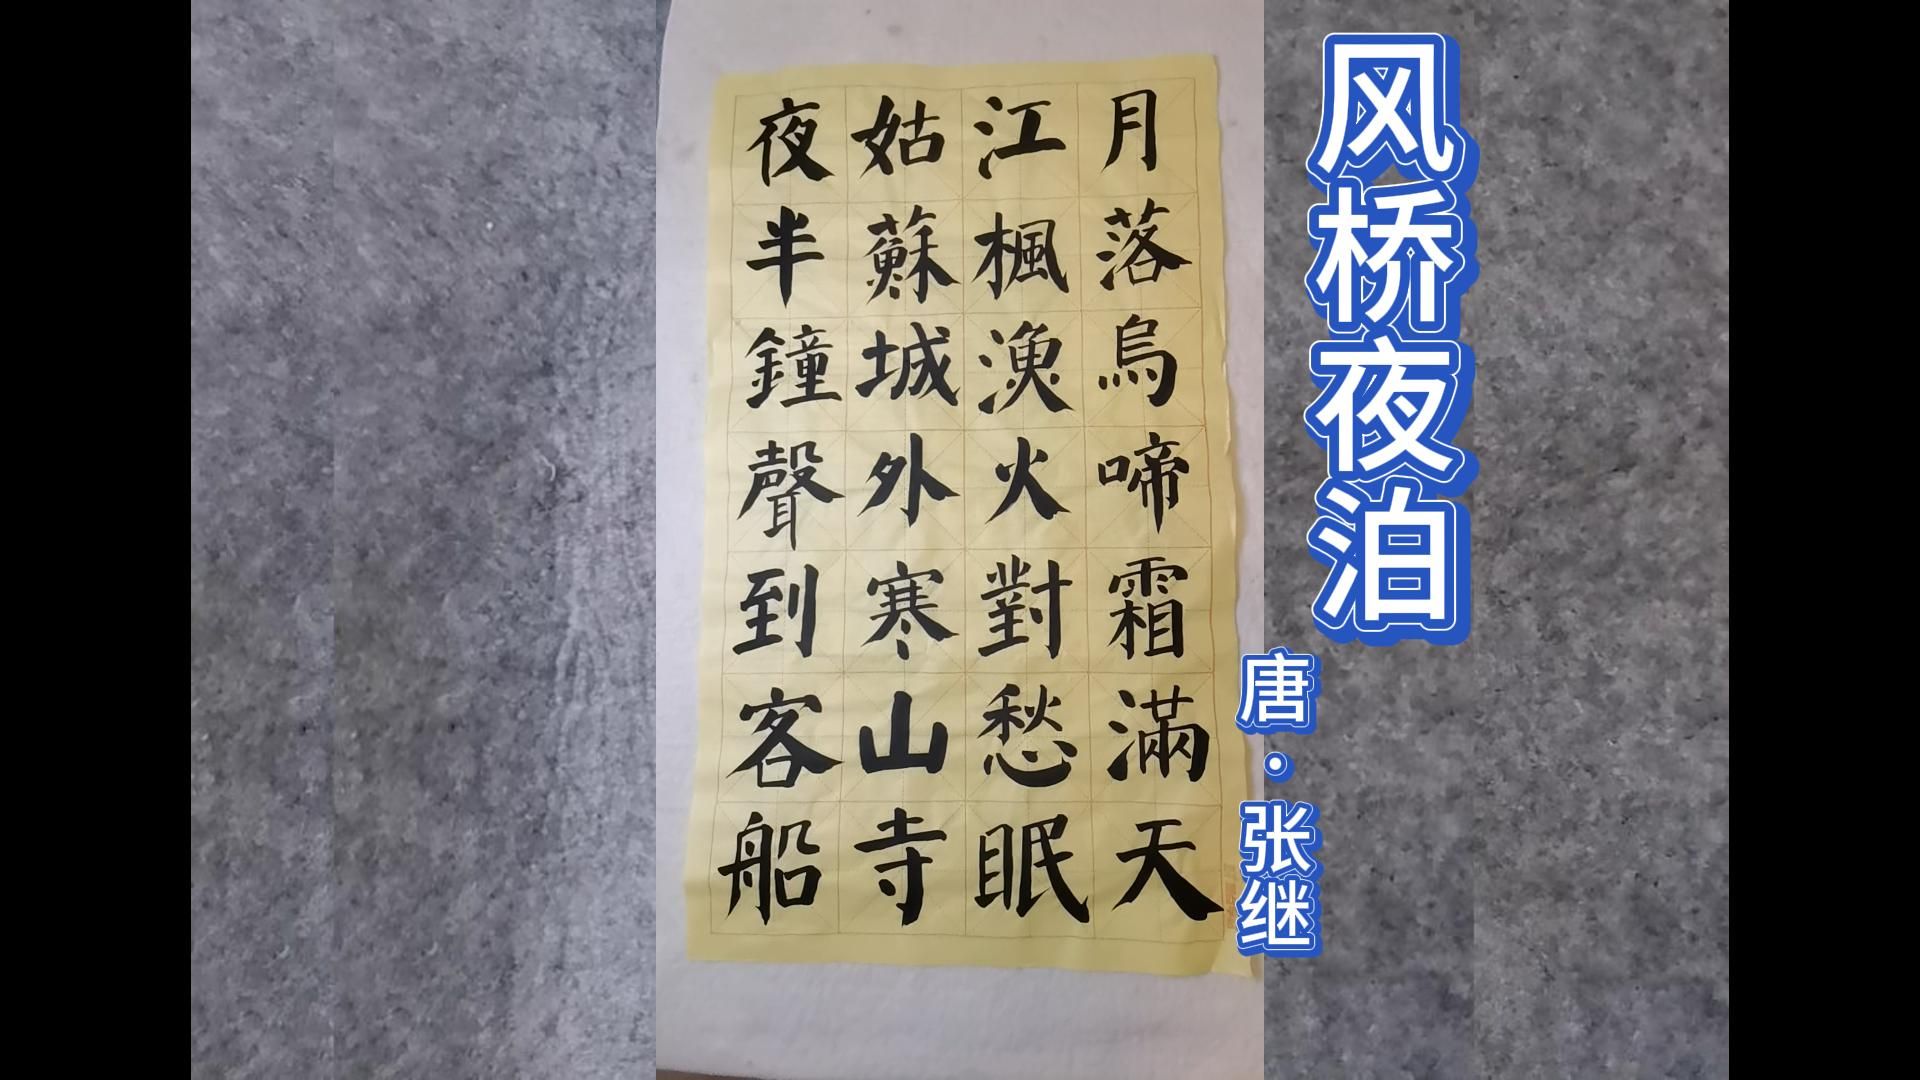 风桥夜泊
唐·张继
月落烏啼霜滿天
江楓漁火對愁眠
姑蘇城外寒山寺
夜半鐘聲到客船